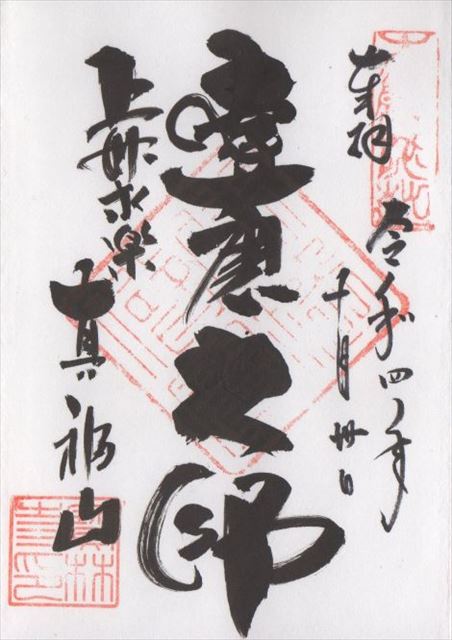 奉拝
令和四年
十月卅日
達磨大師
上州永楽
真福山